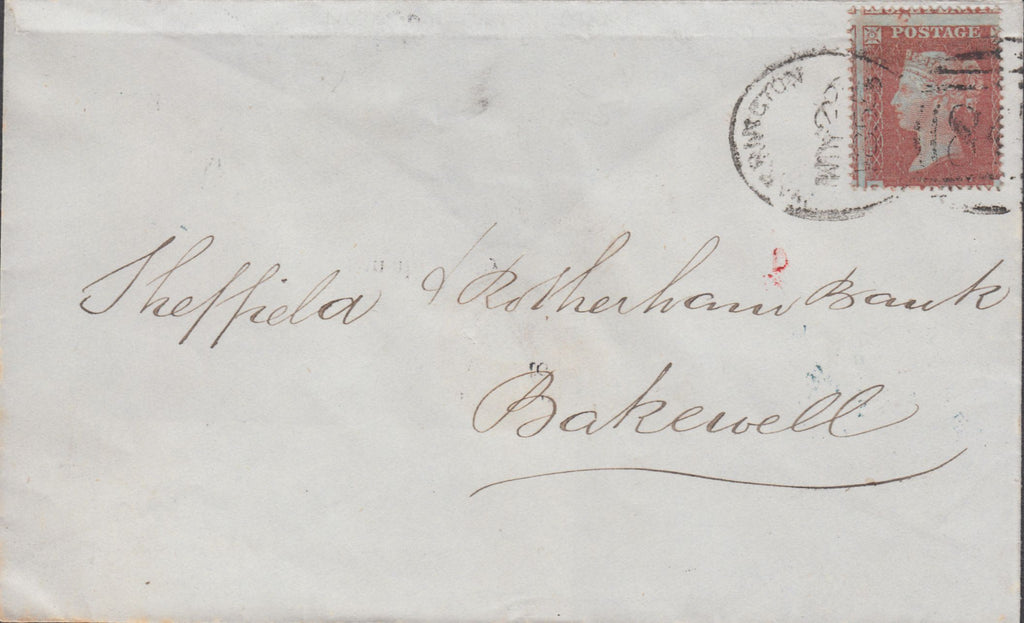 POSTAGE
WARRINGTON
Sheffield & Rotherham Bank
Bakewell